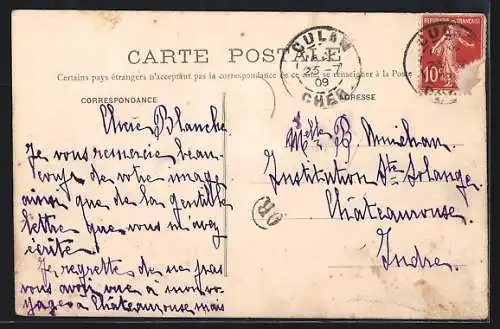 CARTE POSTALE
Certains pays étrangers n'acceptant pas la correspondance de ce côté, se renseigner à la Poste
CORRESPONDANCE
ADRESSE
CULAN
25-7
09
CHER
REPUBLIQUE FRANÇAISE
10
OR
Chère Blanche
Je vous remercie beau-
coup de votre image
ainsi que de la gentille
lettre que vous m'avez
écrite.
Je regrette de ne pas
vous avoir vue à mon vo-
yage à Châteauroux mais
Melle B.
Institution Ste Solange
Châteauroux.
Indre.